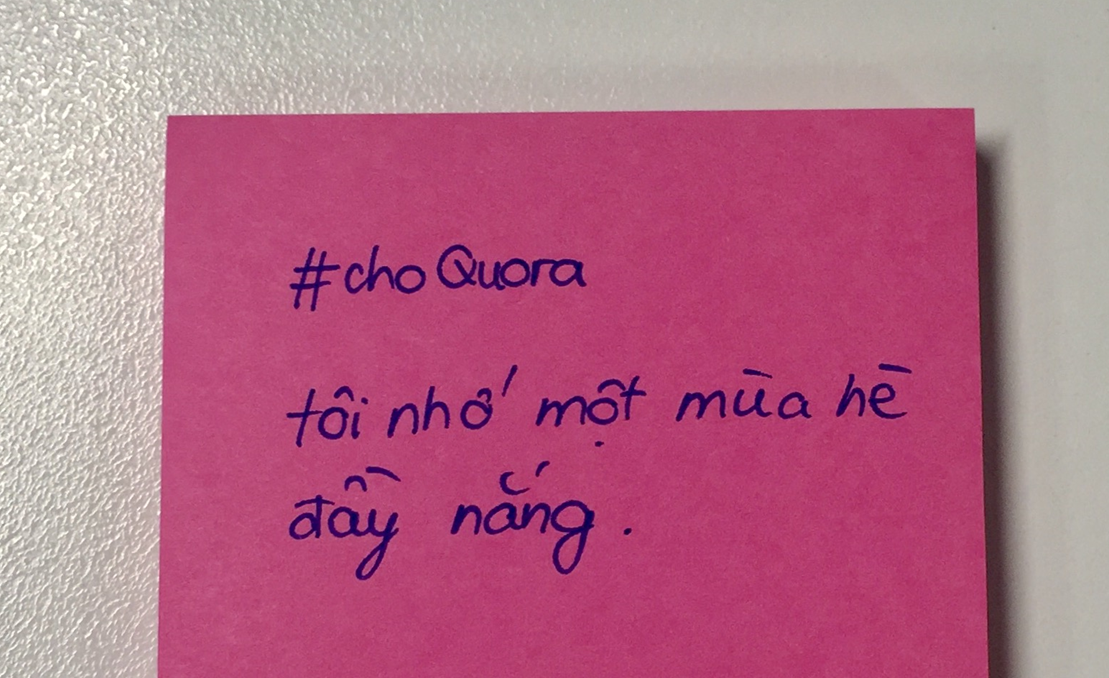 #choQuora
tôi nhớ một mùa hè
đầy nắng.